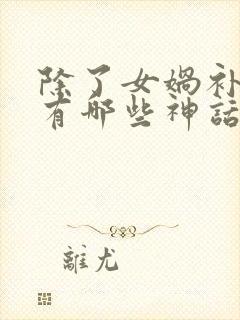 除了女媧补
有哪些神話
離尤